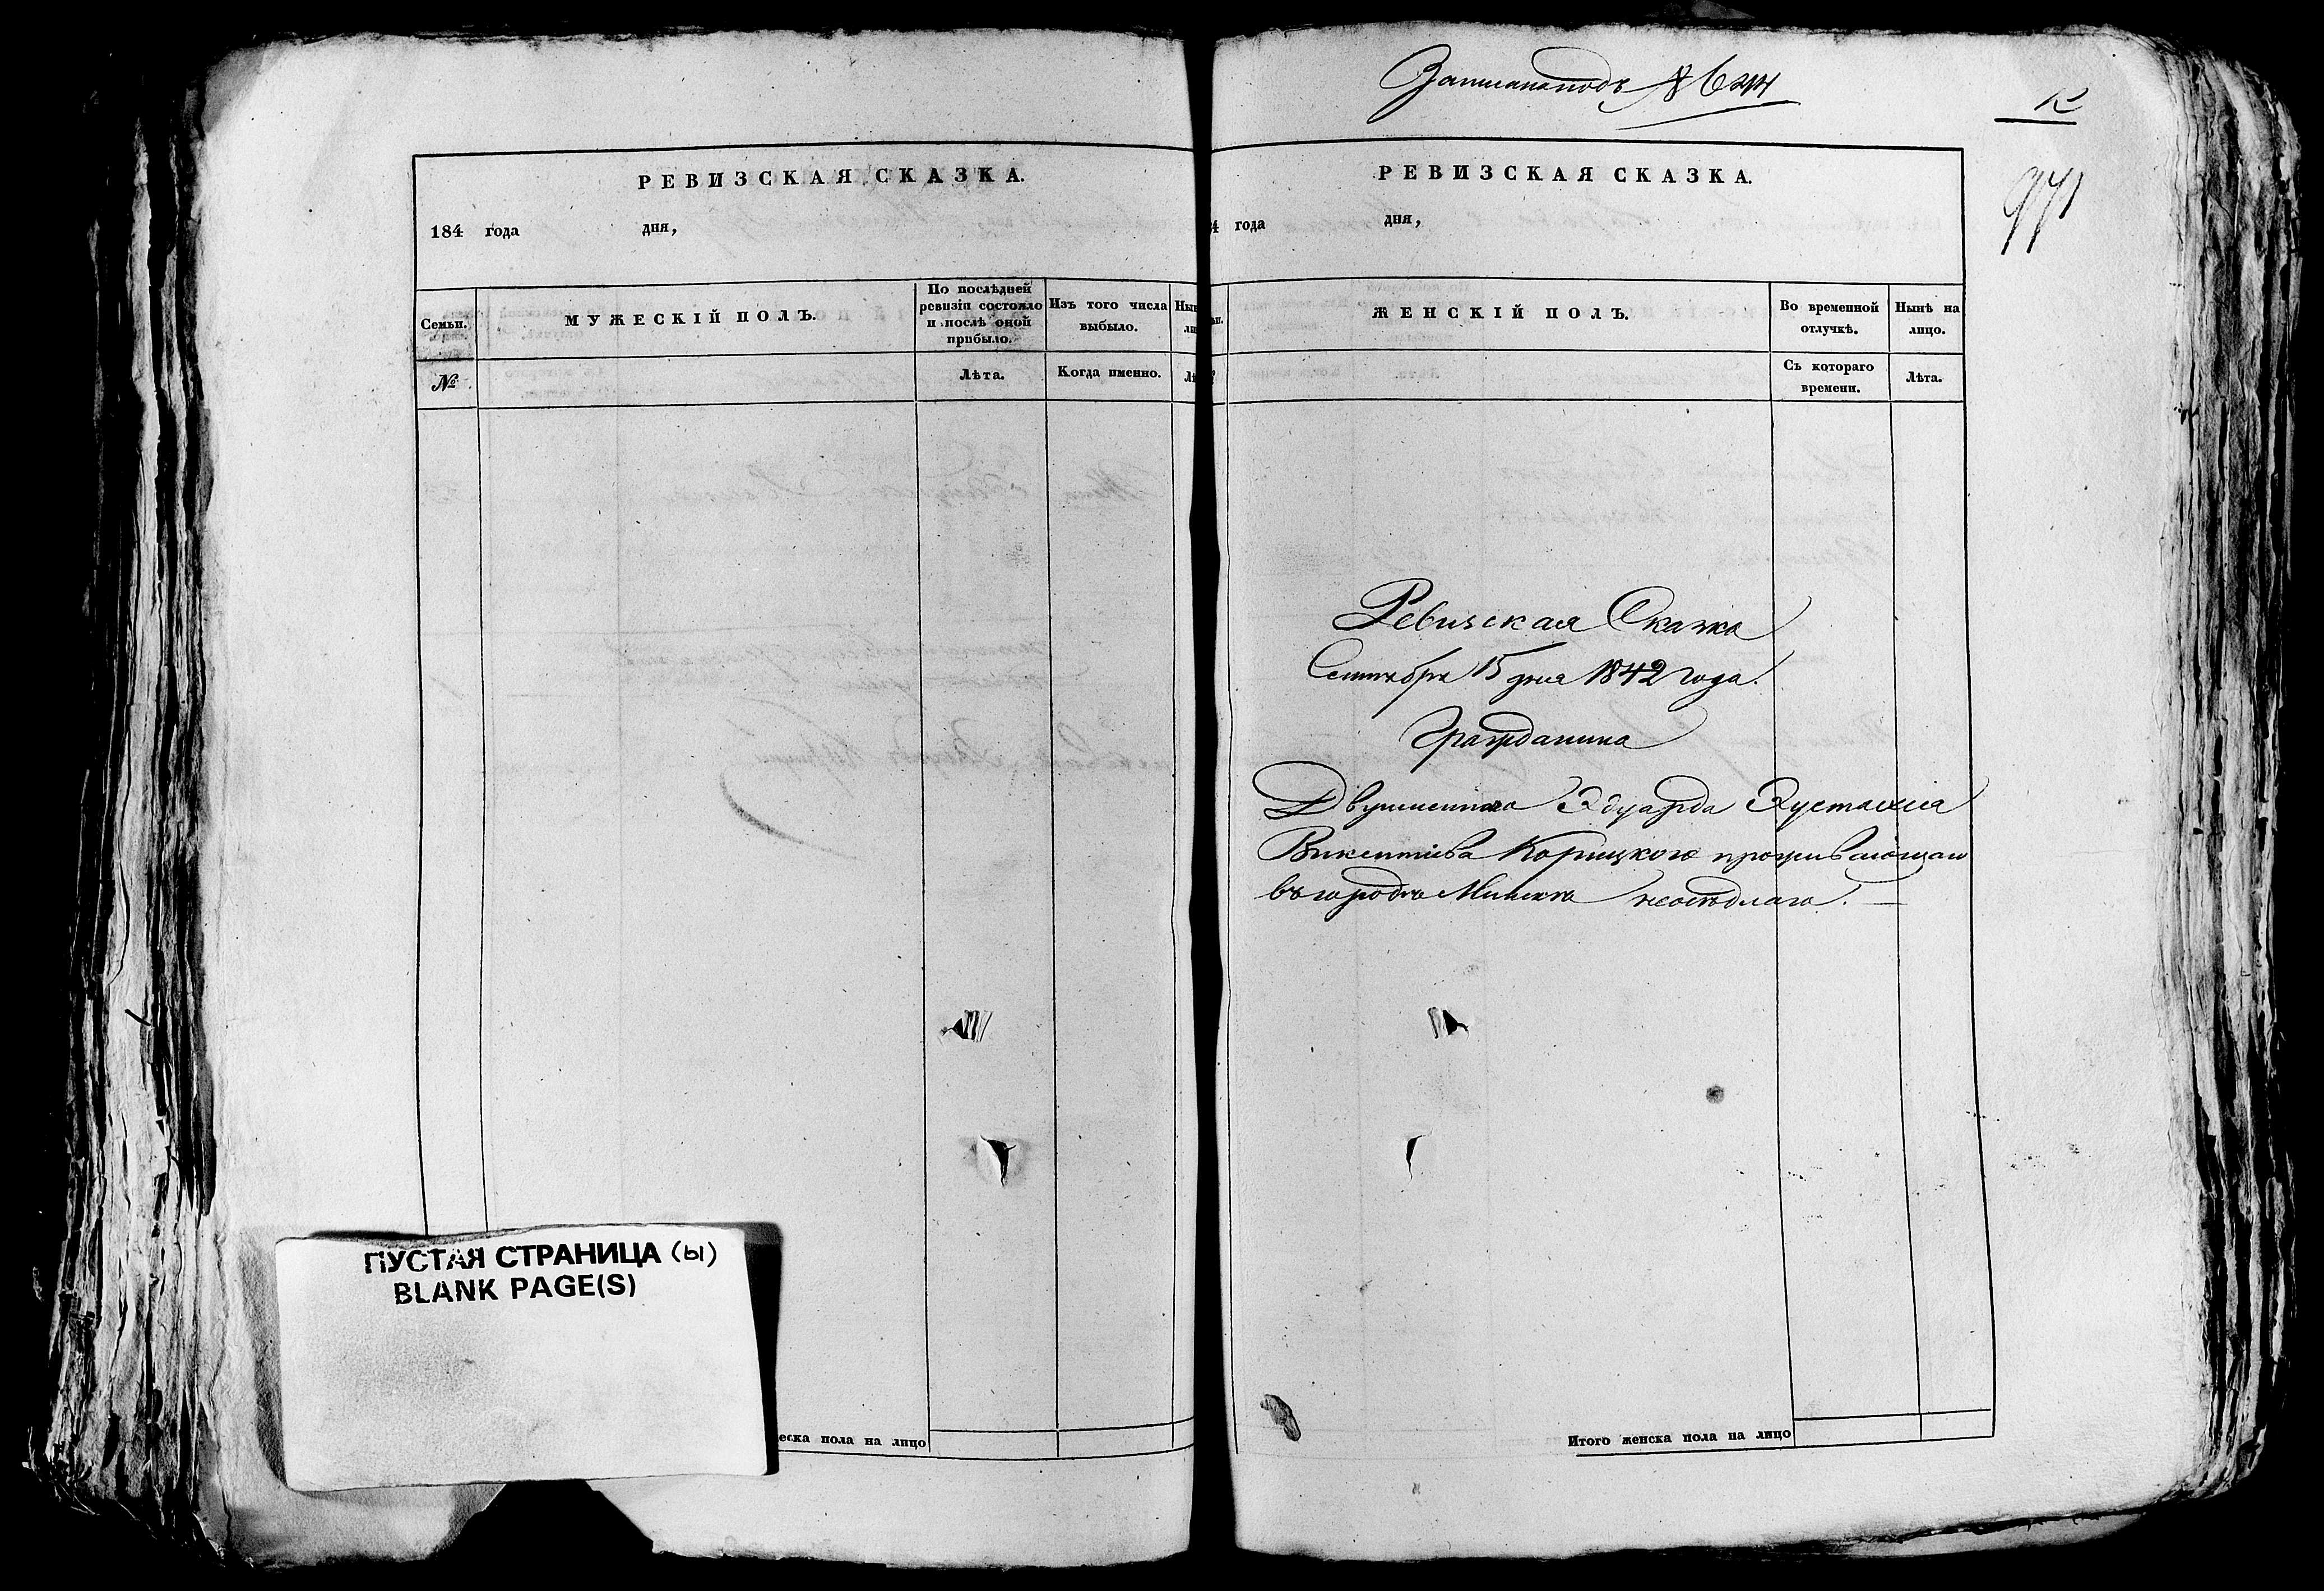 РЕВИЗСКАЯ СКАЗКА.
184 года дня,
Семьи. МУЖЕСКІЙ ПОЛЪ. По послѣдней ревизіи состояло и послѣ оной прибыло. Изъ того числа выбыло.
№ Лѣта. Когда именно.
ПУСТАЯ СТРАНИЦА (ы)
BLANK PAGE(S)
пола на лицо
Записана подъ №
РЕВИЗСКАЯ СКАЗКА.
971
4 года дня,
ЖЕНСКІЙ ПОЛЪ. Во временной отлучкѣ. Нынѣ на лицо.
Съ котораго времени. Лѣта.
Ревизская Сказка
Сентября 15 дня 1842 года.
Гражданина
Двуименнаго Эдуарда Эустахія
Викентіева Корицкого проживающаго
въ городѣ Минскѣ неосѣдлаго. —
Итого женска пола на лицо